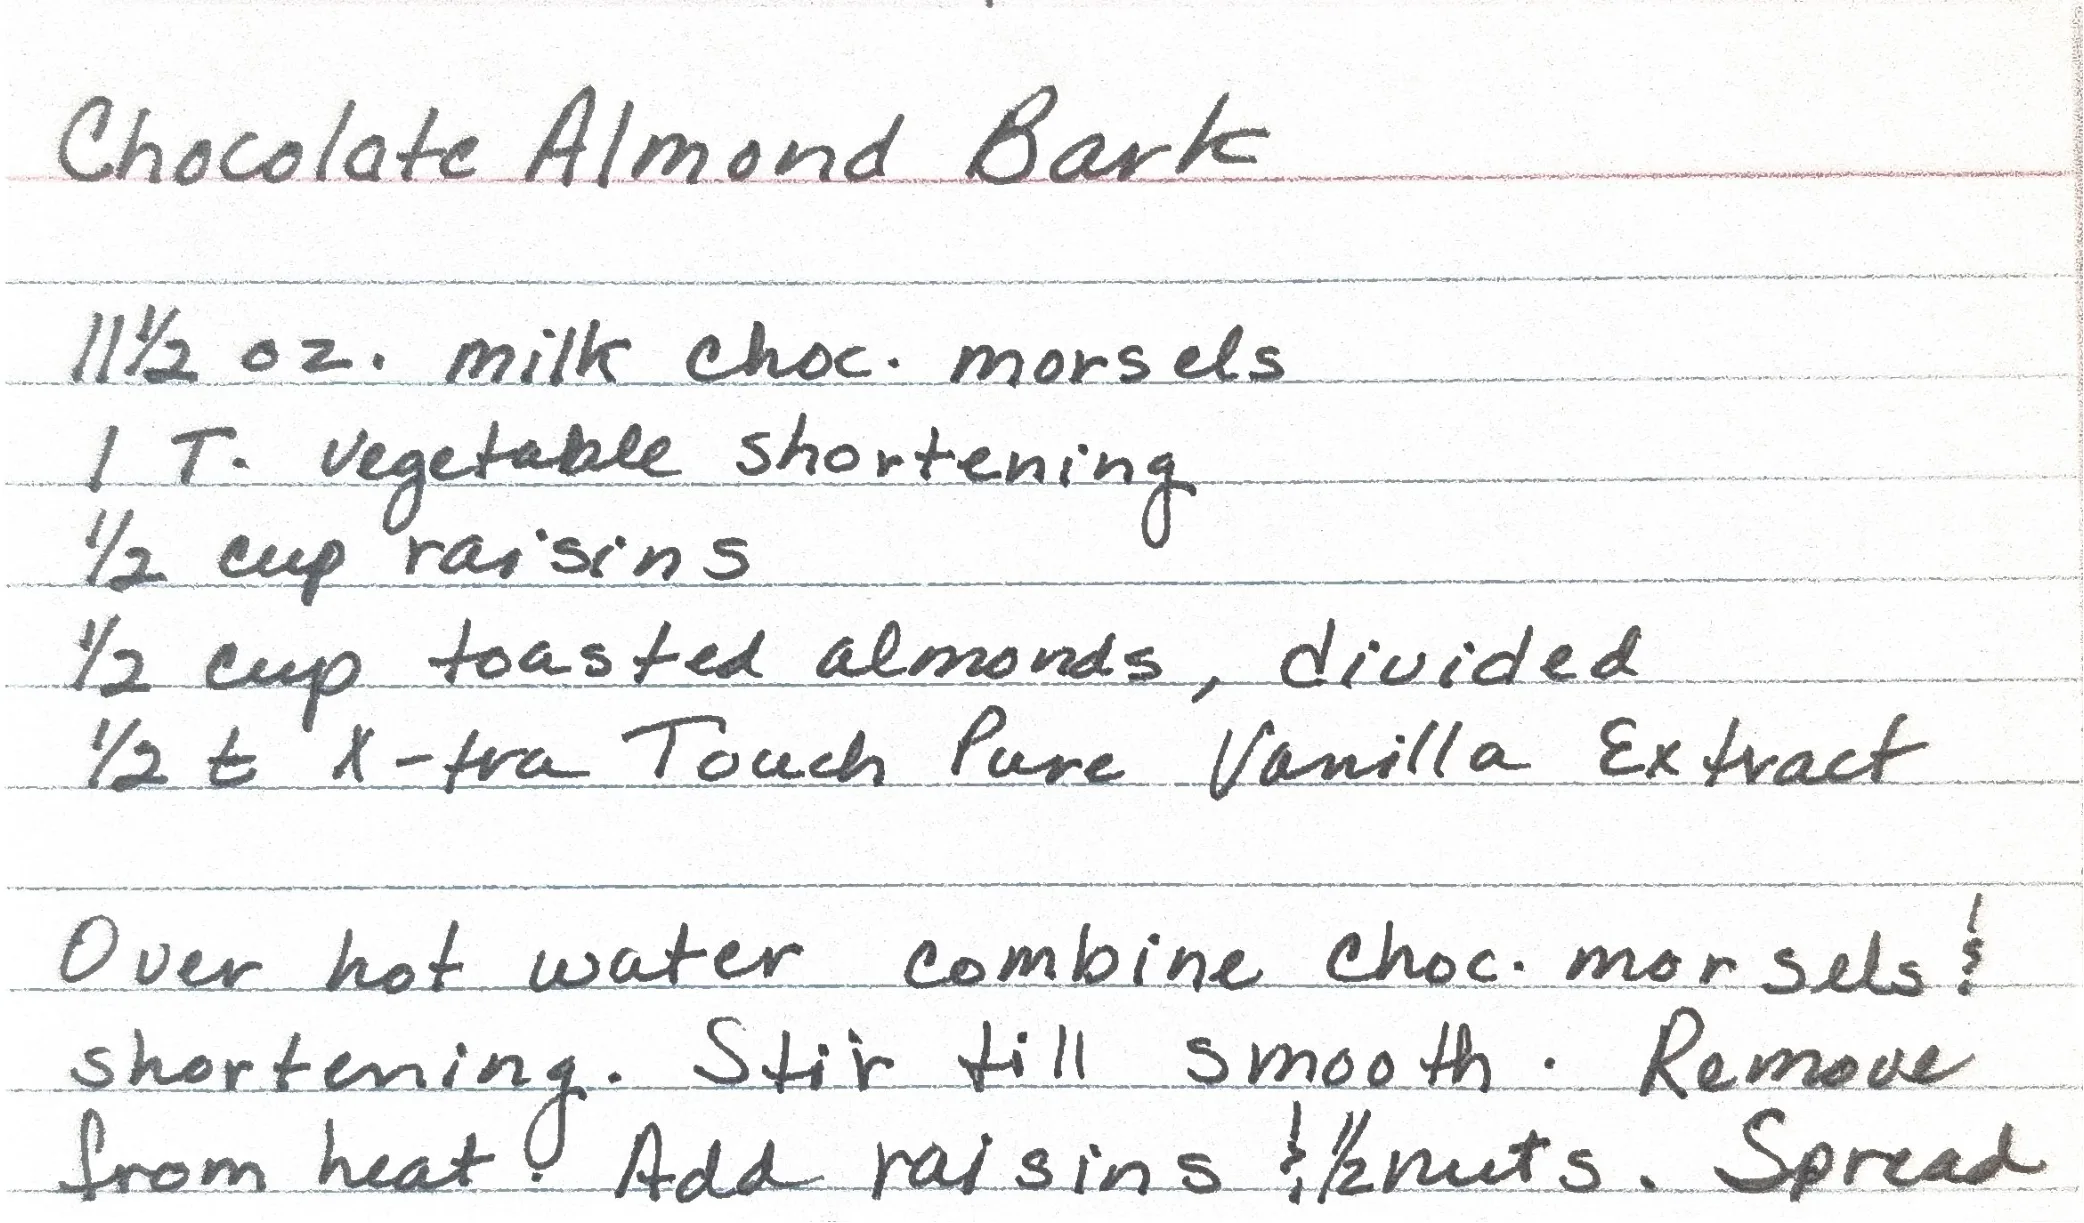 Chocolate Almond Bark
11½ oz. milk choc. morsels
1 T. vegetable shortening
½ cup raisins
½ cup toasted almonds, divided
½ t X-tra Touch Pure Vanilla Extract
Over hot water combine choc. morsels &
shortening. Stir till smooth. Remove
from heat. Add raisins & ½ nuts. Spread